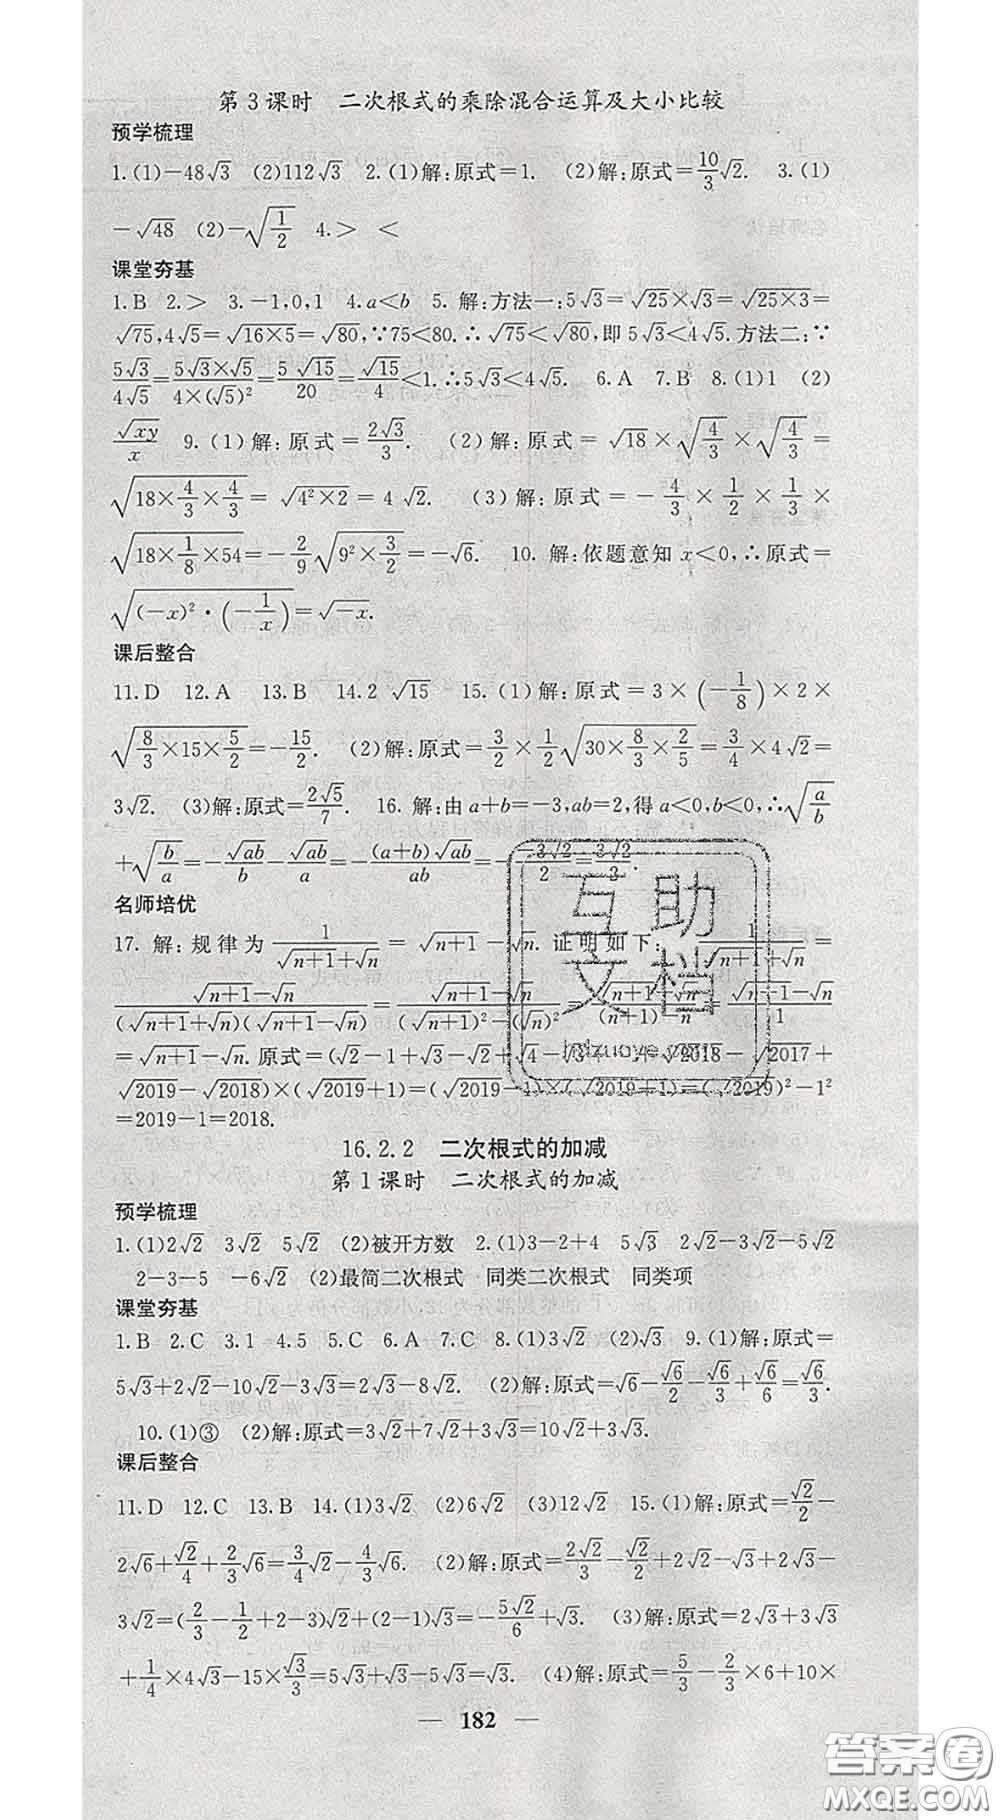 第3课时　二次根式的乘除混合运算及大小比较
预学梳理
1.(1)-48√3　(2)112√3　2.(1)解:原式=1.　(2)解:原式=10/3√2.　3.(1)
-√48　(2)-√(1/2)　4.>　<
课堂夯基
1.B　2.>　3.-1,0,1　4.a<b　5. 解:方法一:5√3=√25×√3=√(25×3)=
√75,4√5=√(16×5)=√80,∵75<80.∴√75<√80,即5√3<4√5.方法二:∵
5√3/4√5=5√3×√5/4×(√5)²=5√15/20=√15/4<1.∴5√3<4√5.　6.A　7.B　8.(1)1　(2)
√xy/x　9.(1)解:原式=2√3/3.　(2)解:原式=√18×√(4/3)×√(4/3)=
√(18×4/3×4/3)=√(4²×2)=4√2.　(3)解:原式=-4/3×1/2×1/3×
√(18×1/8×54)=-2/9√(9²×3/2)=-√6.　10. 解:依题意知x<0,∴原式=
√((-x)²·(-1/x))=√-x.
课后整合
11.D　12.A　13.B　14.2√15　15.(1)解:原式=3×(-1/8)×2×
√(8/3×15×5/2)=-15/2.　(2)解:原式=3/2×1/2√(30×8/3×2/5)=3/4×4√2=
3√2.　(3)解:原式=2√5/7.　16. 解:由a+b=-3,ab=2,得a<0,b<0,∴√(a/b)
+√(b/a)=-√ab/b-√ab/a=-(a+b)√ab/ab=--3√2/2=3√2/3.
名师培优
17. 解:规律为 1/(√(n+1)+√n)=√(n+1)-√n. 证明如下: 1/(√(n+1)+√n)
(√(n+1)-√n)/((√(n+1)+√n)(√(n+1)-√n))=(√(n+1)-√n)/((√(n+1))²-(√n)²)=(√(n+1)-√n)/((n+1)-n)=(√(n+1)-√n)/1
=√(n+1)-√n. 原式=(√2-1+√3-√2+√4-√3+…+√2018-√2017+
√2019-√2018)×(√2019+1)=(√2019-1)×(√2019+1)=(√2019)²-1²
=2019-1=2018.
16.2.2　二次根式的加减
第1课时　二次根式的加减
预学梳理
1.(1)2√2　3√2　5√2　(2)被开方数　2.(1)3-2+4　5√3　2√2-3√2-5√2
2-3-5　-6√2　(2)最简二次根式　同类二次根式　同类项
课堂夯基
1.B　2.C　3.1　4.5　5.C　6.A　7.C　8.(1)3√2　(2)√3　9.(1)解:原式=
5√3+2√2-10√2-3√3=2√3-8√2.　(2)解:原式=√6-√6/2-√6/3+√6/6=√6/3.
10.(1)③　(2)解:原式=3√2+7√2+3√3=10√2+3√3.
课后整合
11.D　12.C　13.B　14.(1)3√2　(2)6√2　(3)12√2　15.(1)解:原式=√2/2-
2√6+√2/4+2/3√6=3/4√2-4/3√6.　(2)解:原式=2√2/3-√2/2+2√2-√3+2√3-
3√2=(2/3-1/2+2-3)√2+(2-1)√3=-5√2/6+√3.　(3)解:原式=2√3+3√3
+1/4×4√3-15×√3/3=5√3+√3-5√3=√3.　(4)解:原式=5/3-2/3×6+10×
— 182 —
互助
文档
答案圈
MXQE.COM